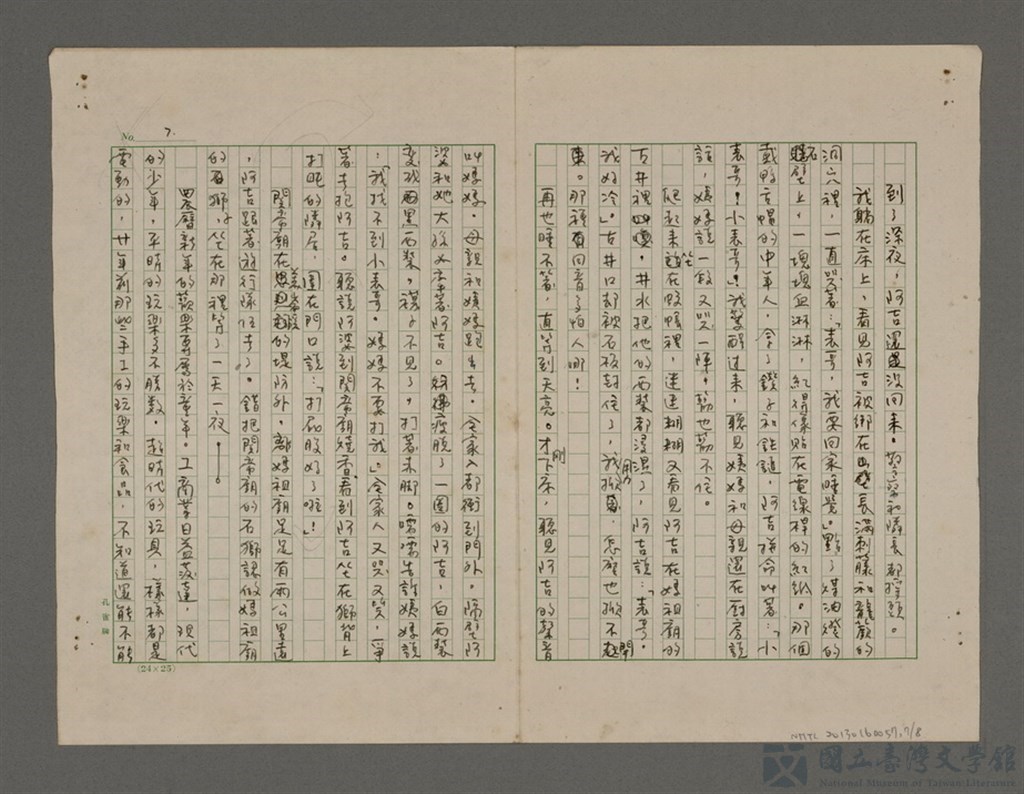 到了深夜，阿吉還沒回來。警察和隣長都搖頭。
我躺在床上，看見阿吉被綁在長滿刺藤和龍歎的
洞穴裡，一直哭著：「表哥，我要回家睡覺。」點了煤油燈的
石壁上，一塊塊血淋淋，紅得像貼在電線桿的紅紙。那個
戴鴨舌帽的中年人，拿了鐵子和鉗鏈，阿吉拼命叫著：「小
表哥！小表哥！」我驚醒過來，聽見姨媽和母親還在厨房說
話，姨媽說一段又哭一陣，勸也勸不住。
爬起來坐在眠床裡，迷迷糊糊又看見阿吉在媽祖廟的
古井裡，井水把他的西裝都浸濕了，阿吉說：「表哥，
我好冷。」古井口都被石板封住了，我用力掀，怎麼也掀不開
來。那種回音多怕人哪！
再也睡不著，直等到天亮。才剛下床，聽見阿吉的聲音
No. 7.
叫媽媽。母親和姨媽跑出去，全家人都衝到門外。隔壁阿
婆和她大孫女牽著阿吉。疲脫了一圈的阿吉，白西裝
變成黑西裝，襪子不見了，打著赤脚。嚅嚅告訴姨媽說
：「我找不到小表哥。媽媽不要打我。」全家人又哭又笑，爭
著去抱阿吉。聽說阿婆到關帝廟燒香，看到阿吉坐在獅背上
打盹的隣居，圍在門口說：「打屁股好了啦！」
關帝廟在的堤防外，離媽祖廟足足有兩公里遠
，阿吉跟著遊行隊伍去了。錯把關帝廟的石獅誤做媽祖廟
的石獅，坐在那裡等了一天一夜——。
農曆新年的歡樂專屬於童年。工商業日益發達，現代
的少年，平時的玩樂多不勝數。趕時代的玩具，樣樣都是
電動的，廿年前那些手工的玩樂和食品，不知道還能不能
(24×25)
NMTL 20130160057,7/8
國立臺灣文學館
National Museum of Taiwan Literature